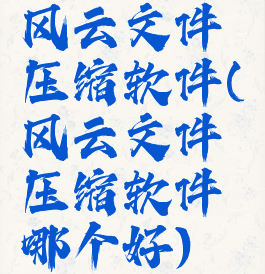 风云文件
压缩软件(
风云文件
压缩软件
哪个好)